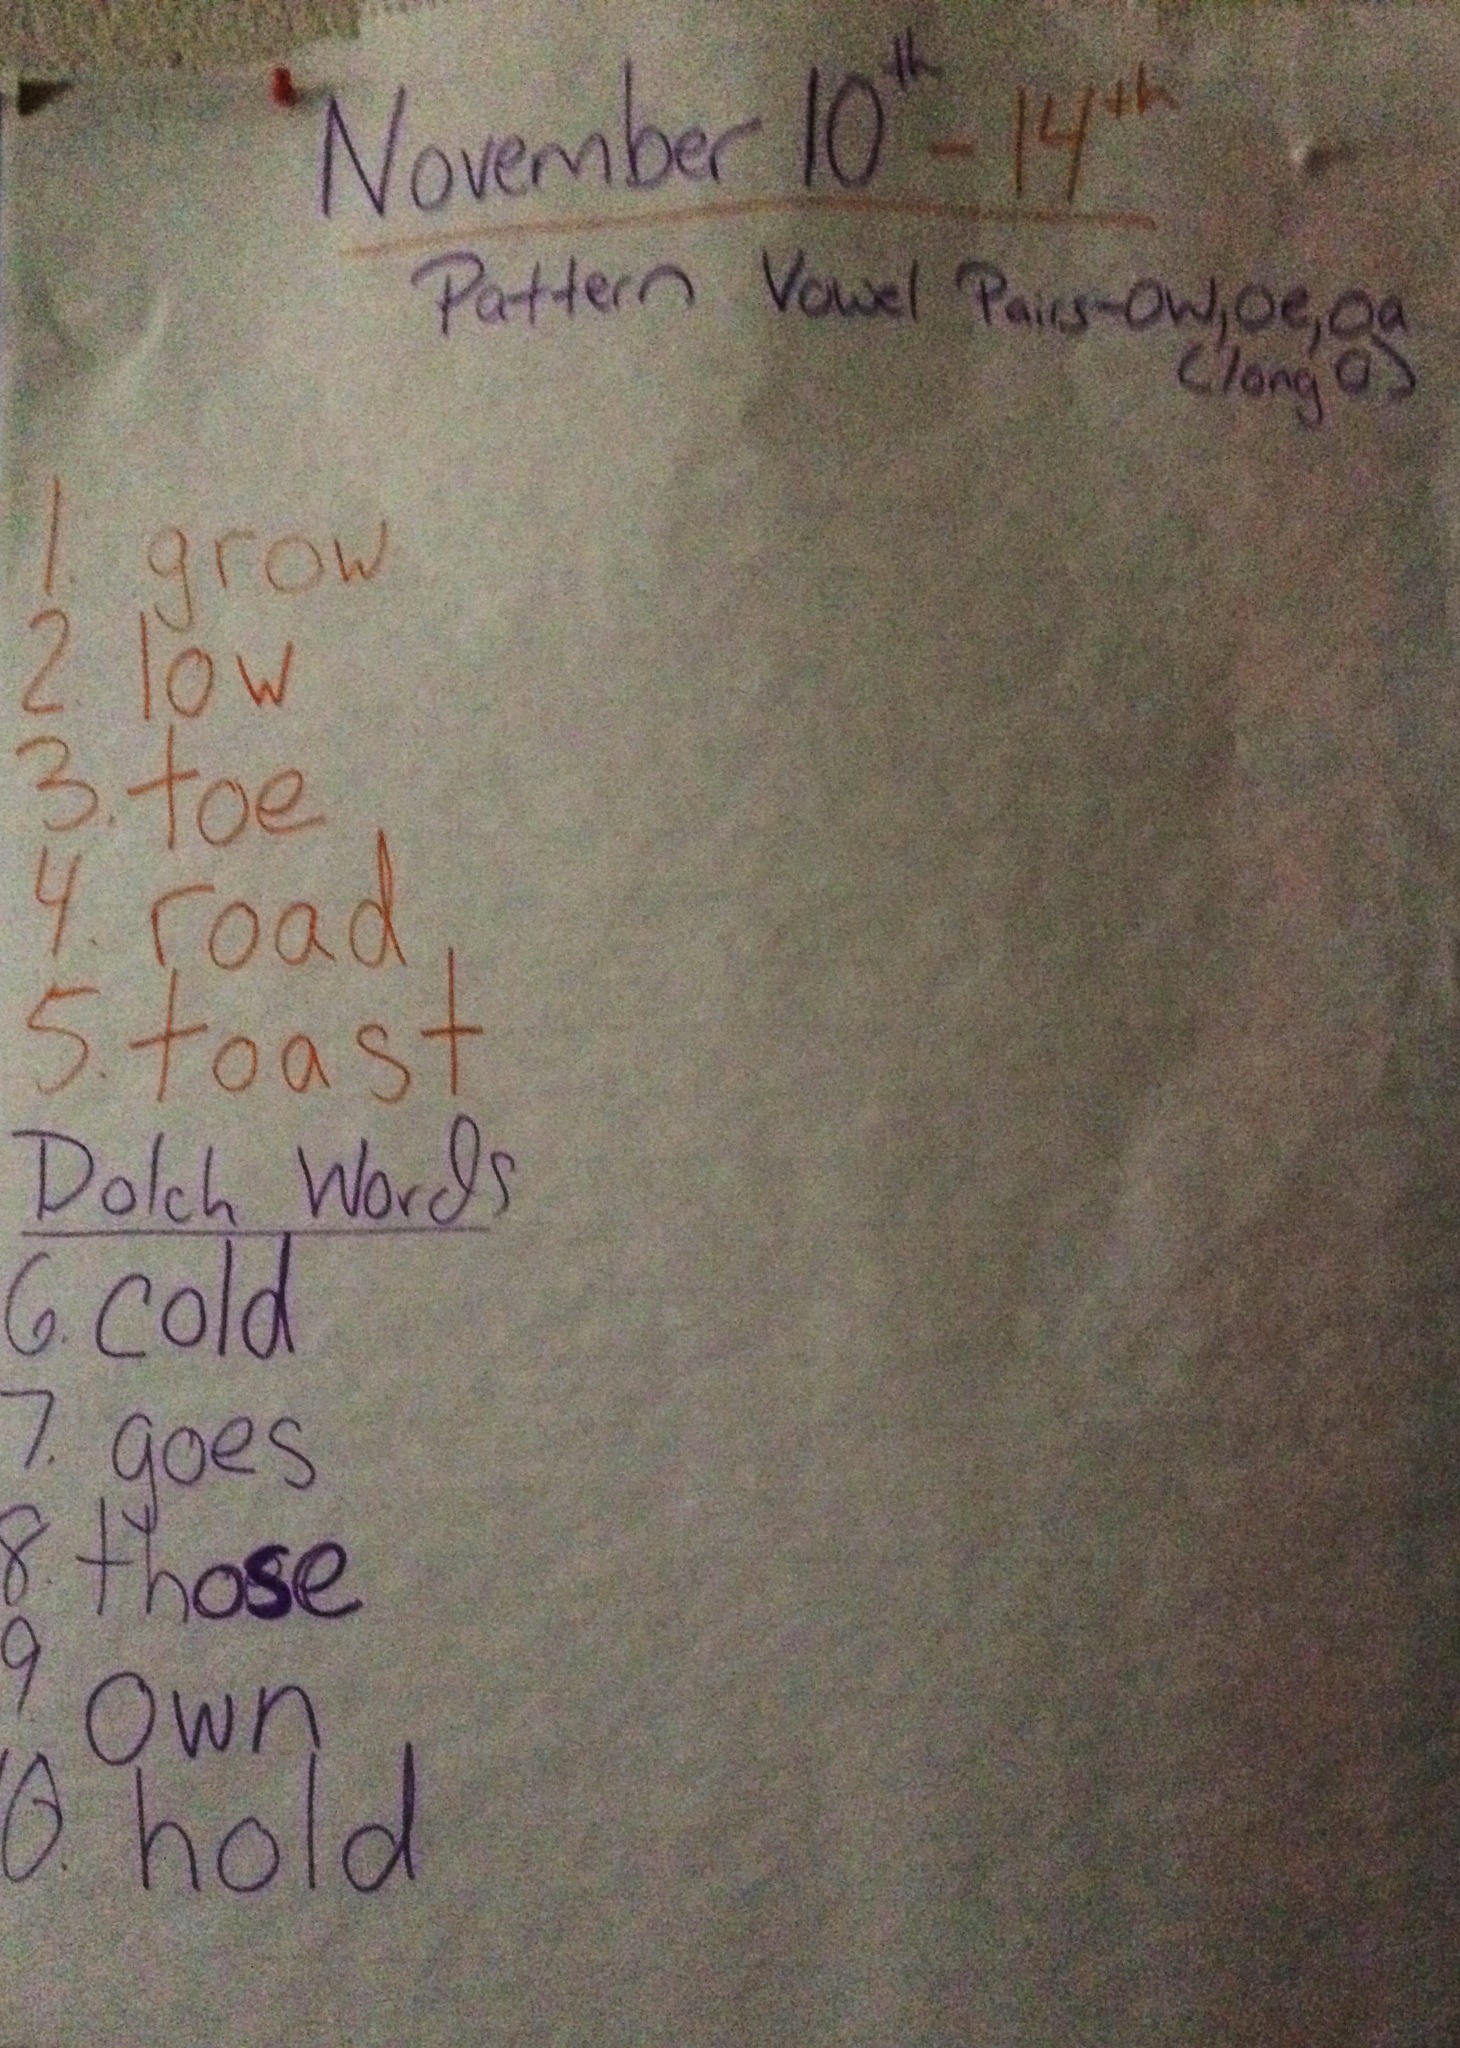 November 10th - 14th
Pattern Vowel Pairs-ow, oe, oa
(long o)
1. grow
2. low
3. toe
4. road
5. toast
Dolch Words
6. cold
7. goes
8. those
9. own
10. hold